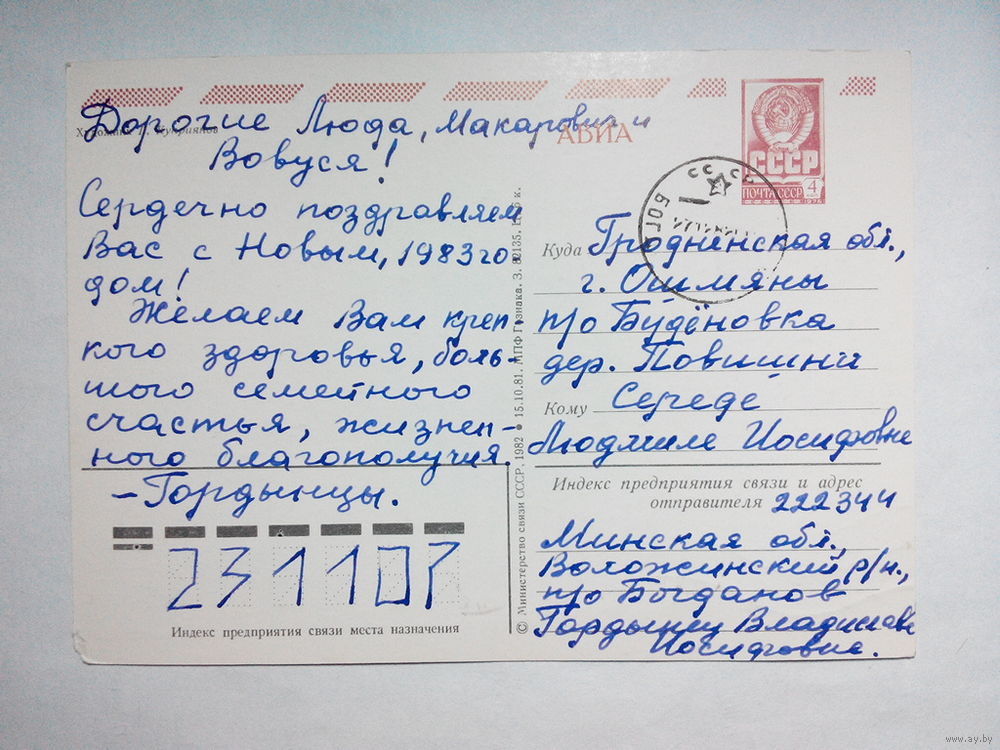 Художник Куприянов
АВИА
СССР
ПОЧТА СССР
4
1976
Дорогие Люда, Макарович и
Вовуся!
Сердечно поздравляем
Вас с Новым, 1983 го
дом!
Желаем Вам креп-
кого здоровья, боль-
шого семейного
счастья, жизнен-
ного благополучия.
- Гордынцы.
231107
Индекс предприятия связи места назначения
© Министерство связи СССР, 1982 • 15.10.81. МПФ Гознака. З. 82135. к.
Куда Гродненская обл.,
г. Ошмяны
п/о Будёновка
дер. Повишни
Кому Середе
Людмиле Иосифовне
Индекс предприятия связи и адрес
отправителя 222344
Минская обл.,
Воложинский р/н.,
п/о Богданов
Гордынец Владислава
Иосифовна.
www.ay.by